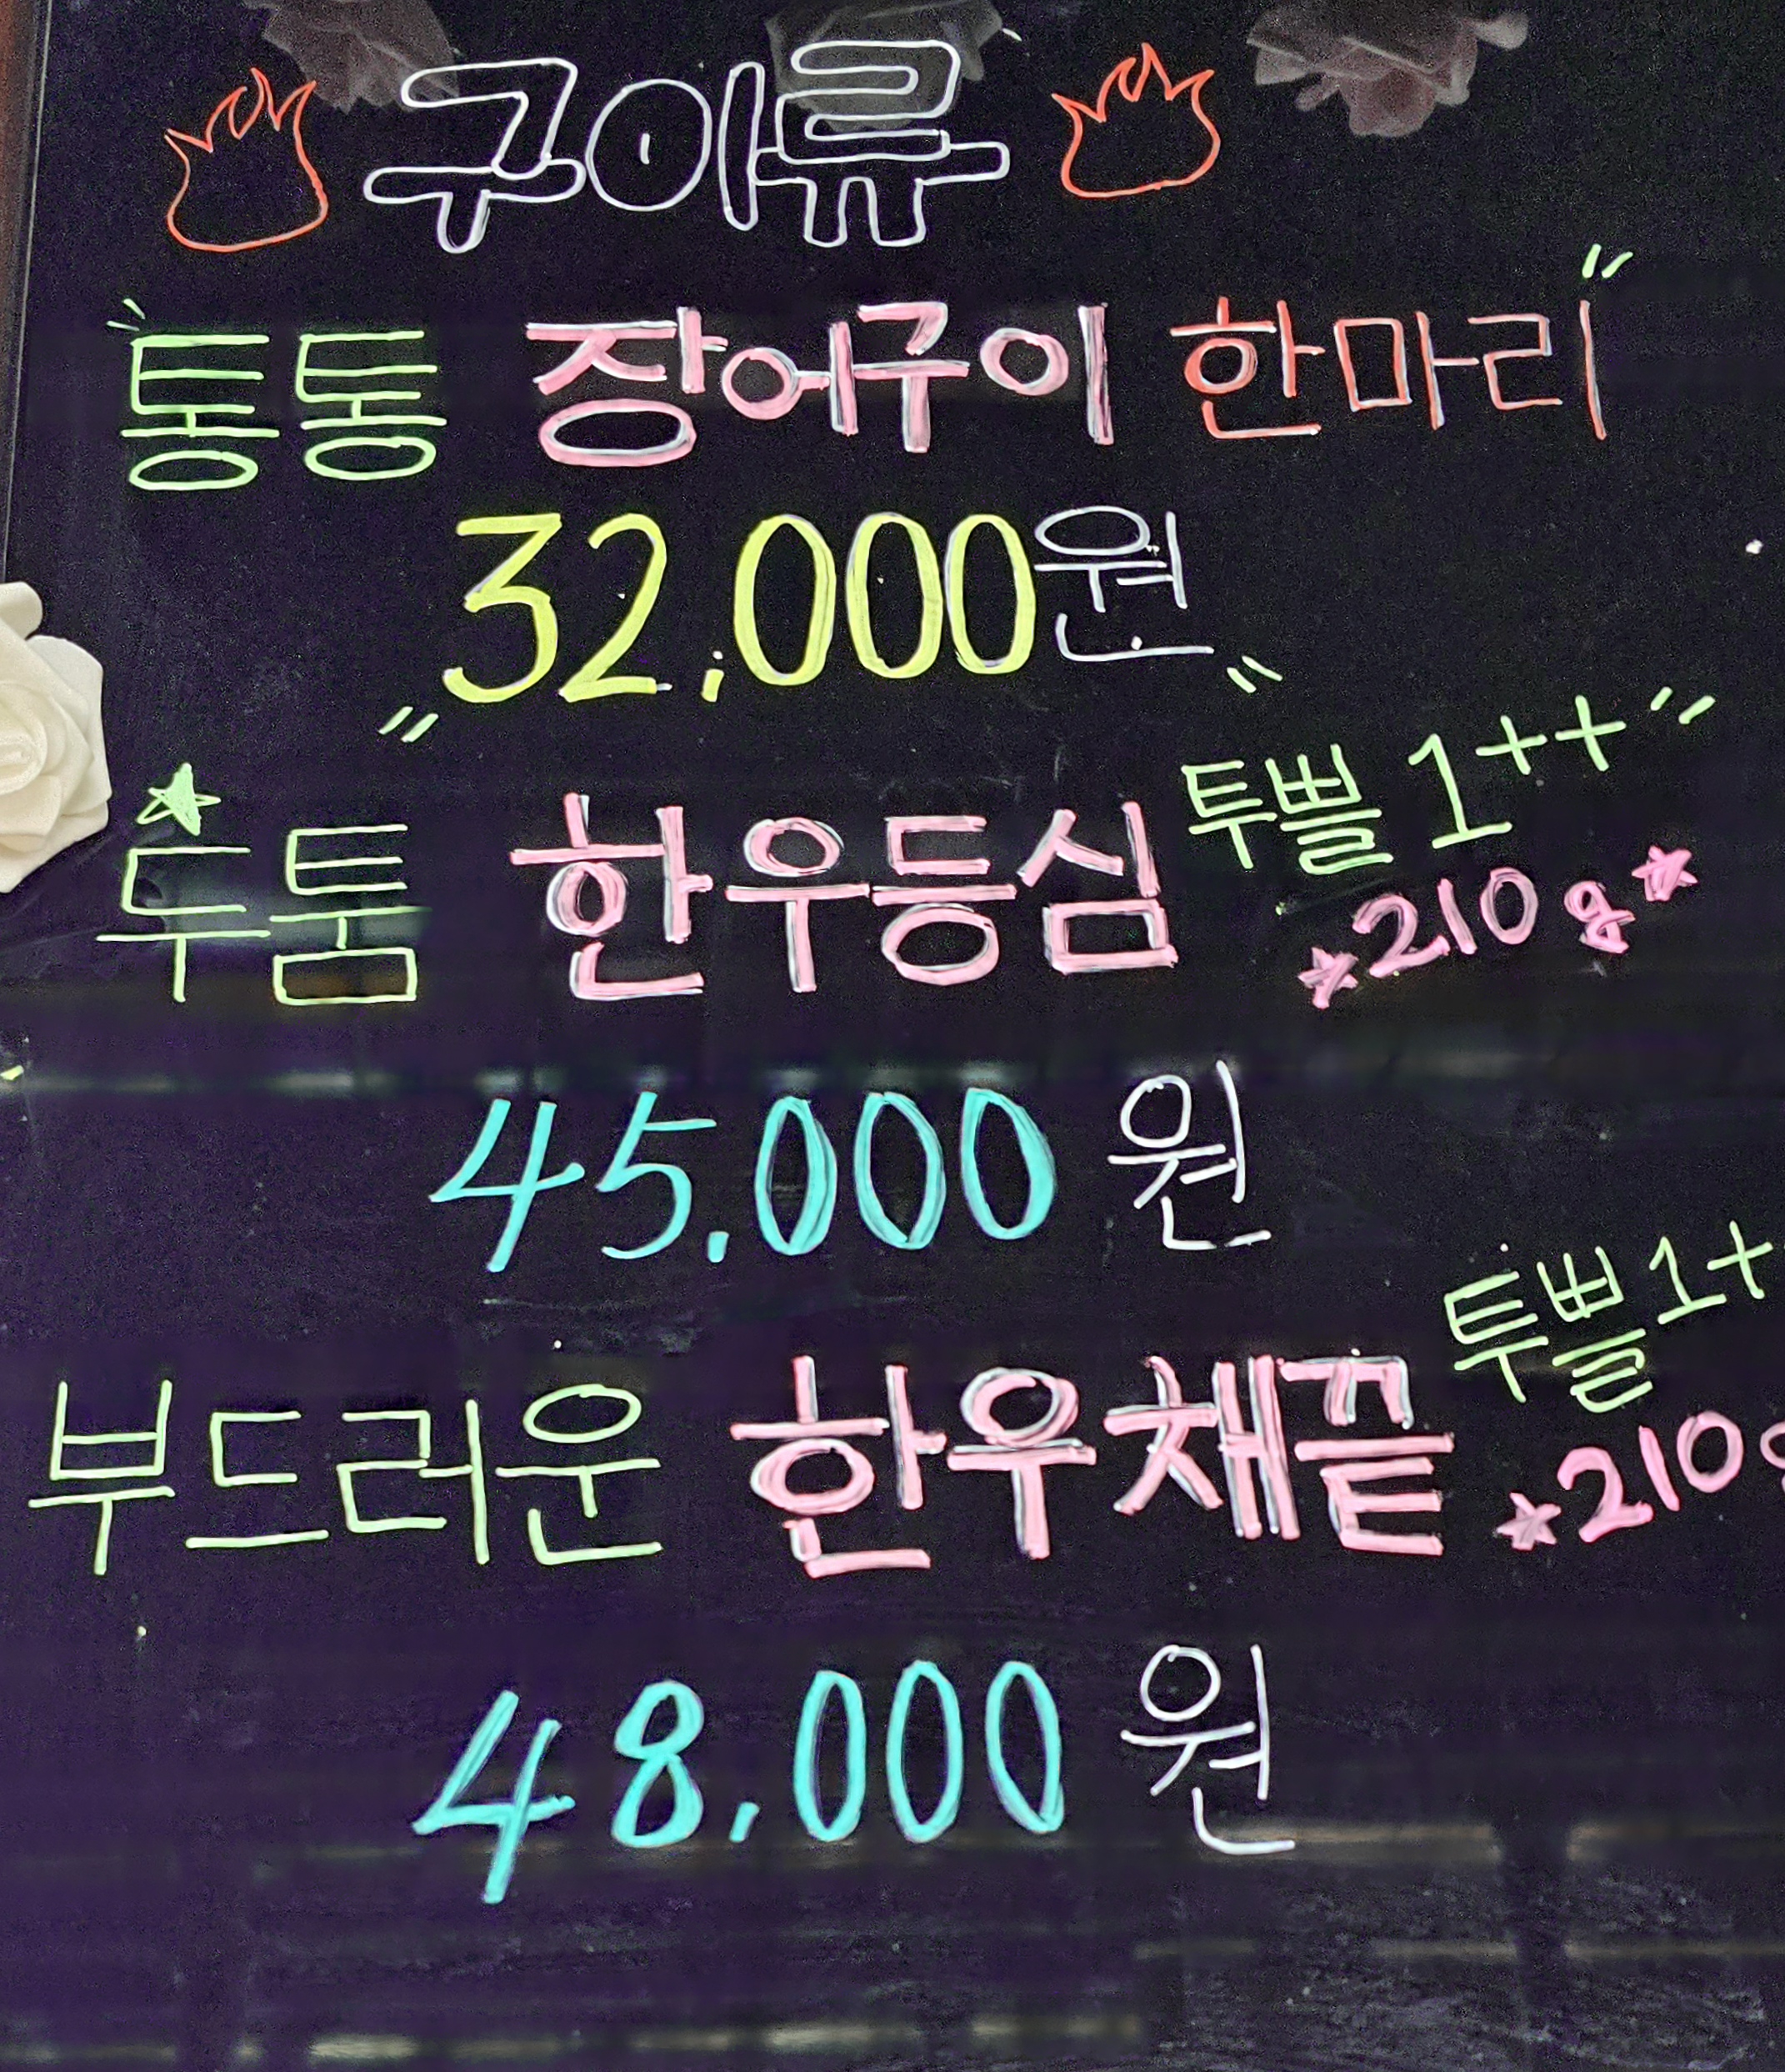 구이류
통통 장어구이 한마리
32,000원
두툼 한우등심 투쁠 1++
210g
45,000원
부드러운 한우채끝 투쁠 1+
210g
48,000원